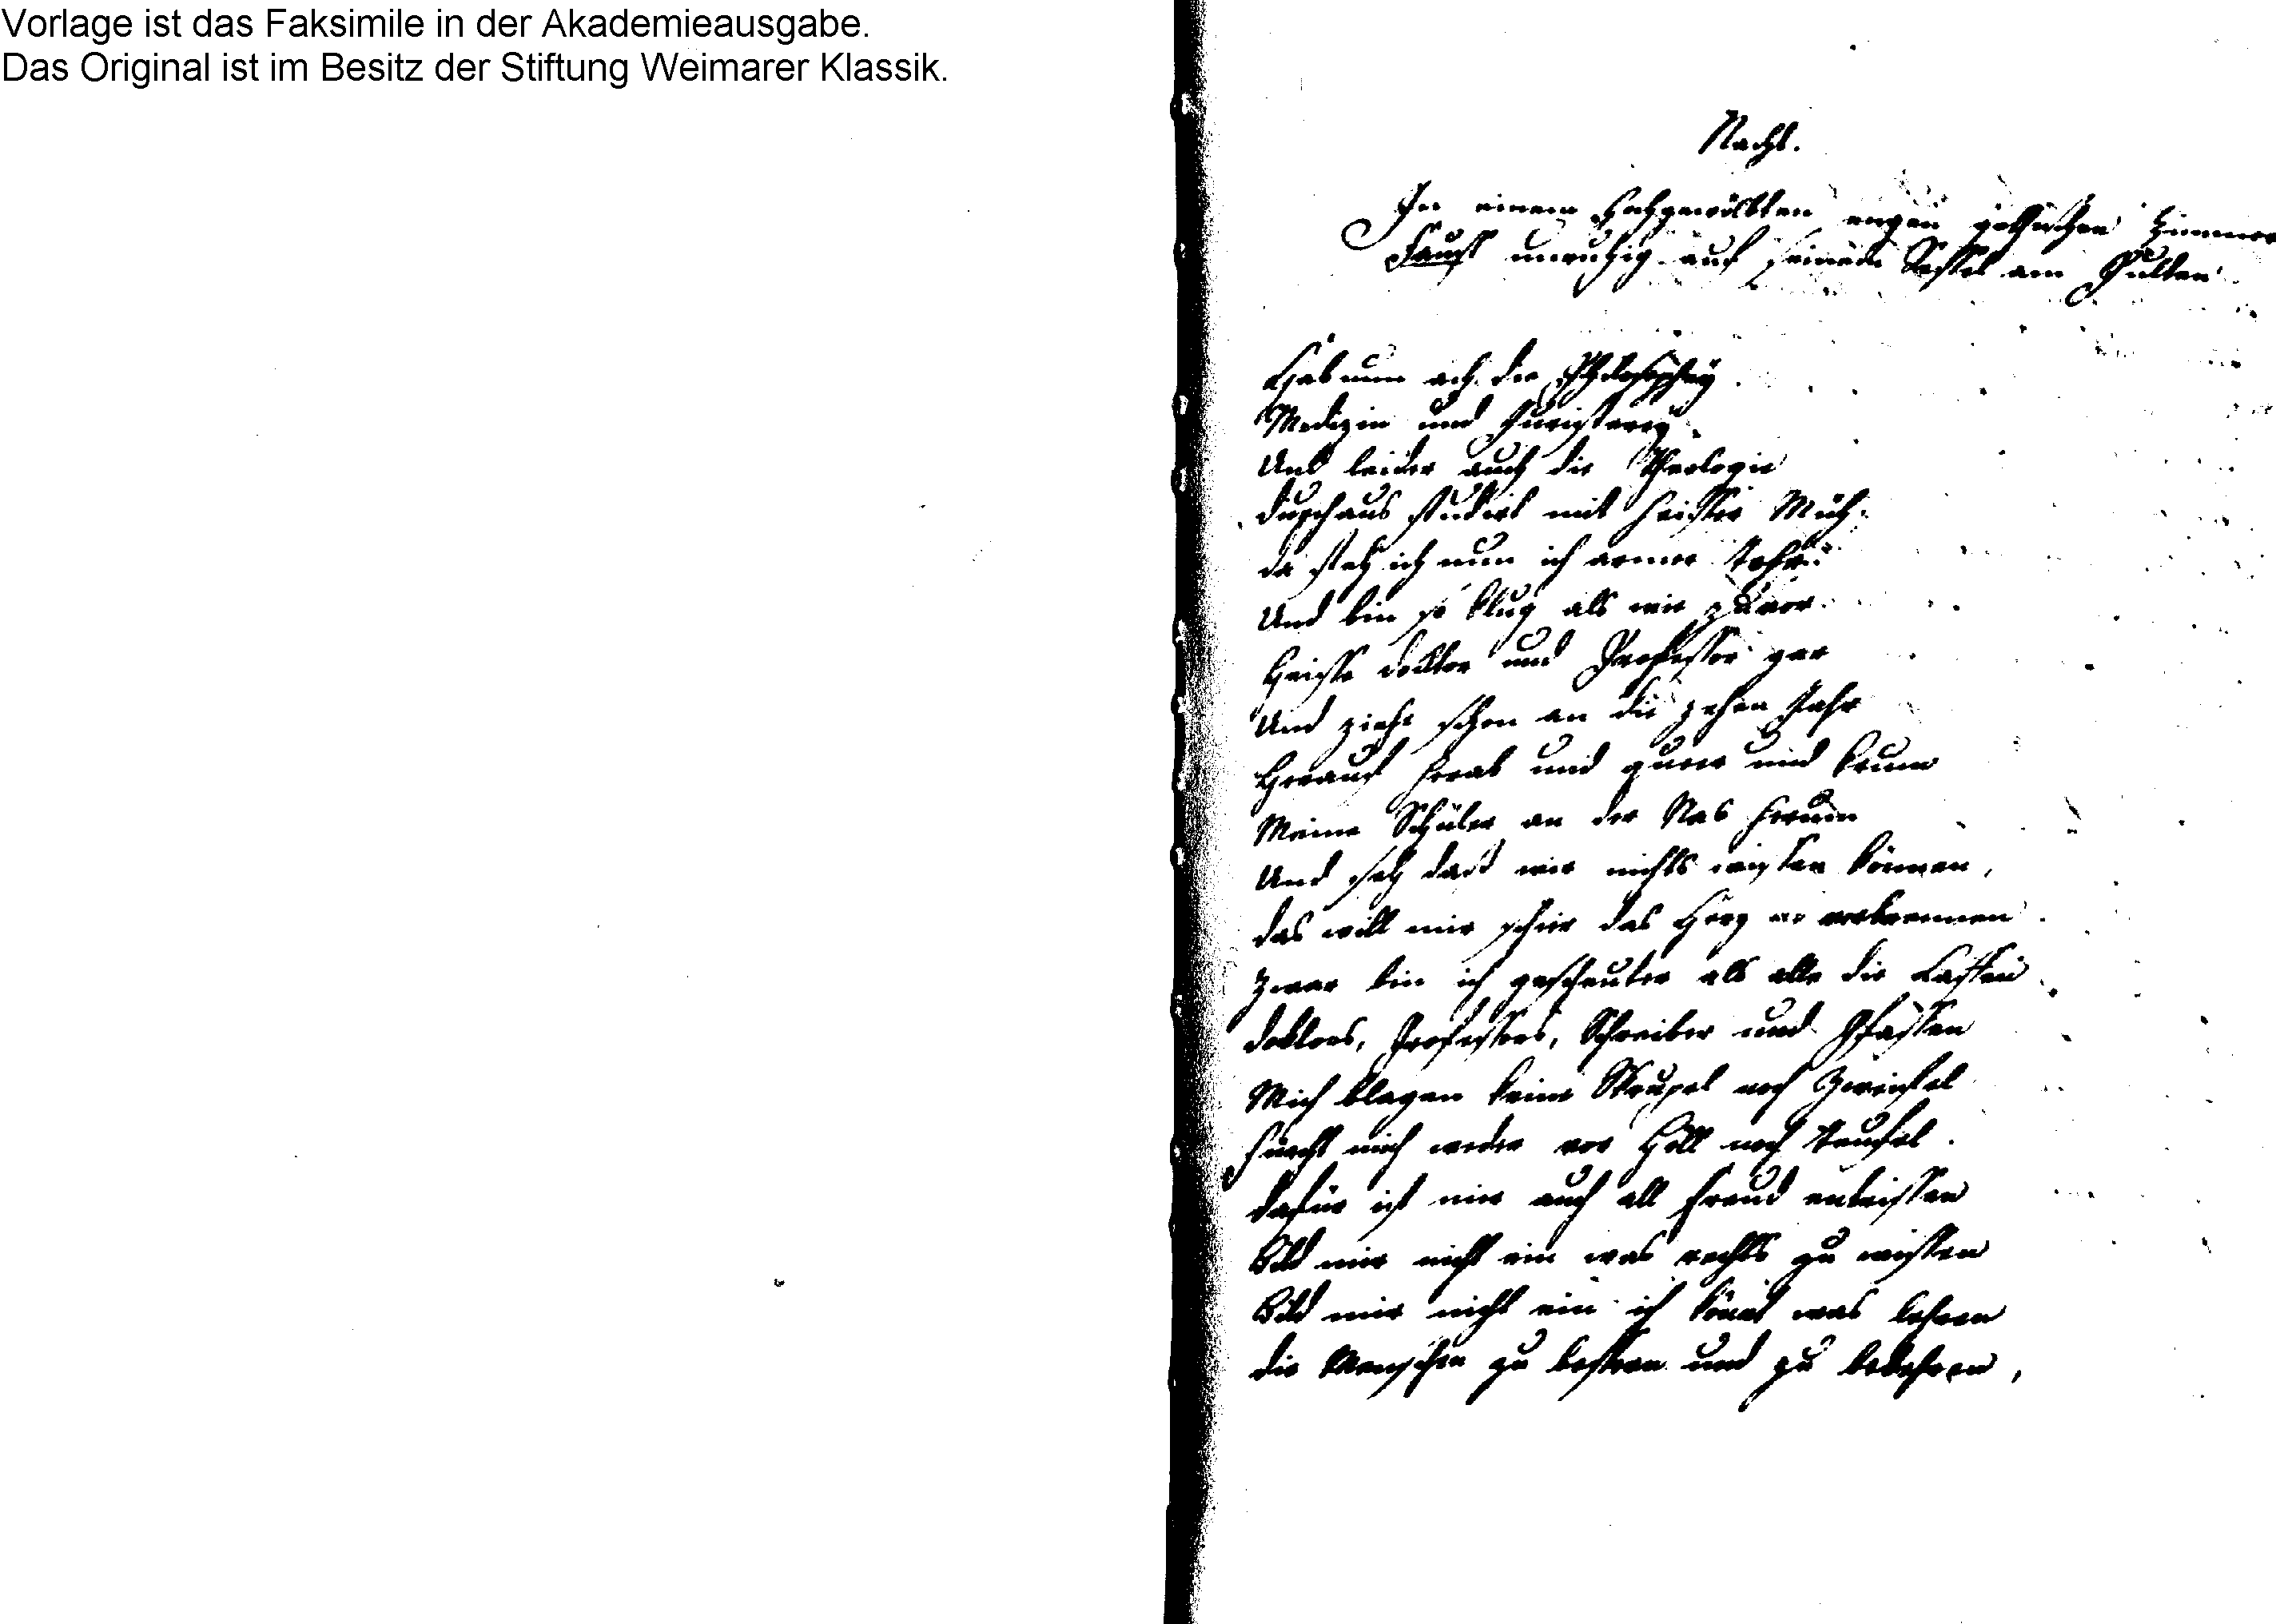 Vorlage ist das Faksimile in der Akademieausgabe.
Das Original ist im Besitz der Stiftung Weimarer Klassik.
Nacht.
In einem hochgewölbten engen gothischen Zimmer
Faust unruhig auf seinem Sessel am Pulten
Hab nun ach die Philosophey
Medizin und Juristerey
Und leider auch die Theologie
Durchaus studirt mit heisser Müh.
Da steh ich nun ich armer Tohr
Und bin so klug als wie zuvor.
Heisse Docktor und Professor gar
Und ziehe schon an die zehen Jahr
Herauf herab und queer und krum
Meine Schüler an der Nas herum
Und seh dass wir nichts wissen können,
Das will mir schier das Herz verbrennen.
Zwar bin ich gescheuter als alle die Laffen
Docktors, Professors, Schreiber und Pfaffen
Mich plagen keine Skrupel noch Zweifel
Fürcht mich weder vor Höll noch Teufel.
Dafür ist mir auch all Freud entrissen
Bild mir nicht ein was rechts zu wissen
Bild mir nicht ein ich könnt was lehren
Die Menschen zu bessern und zu bekehren,